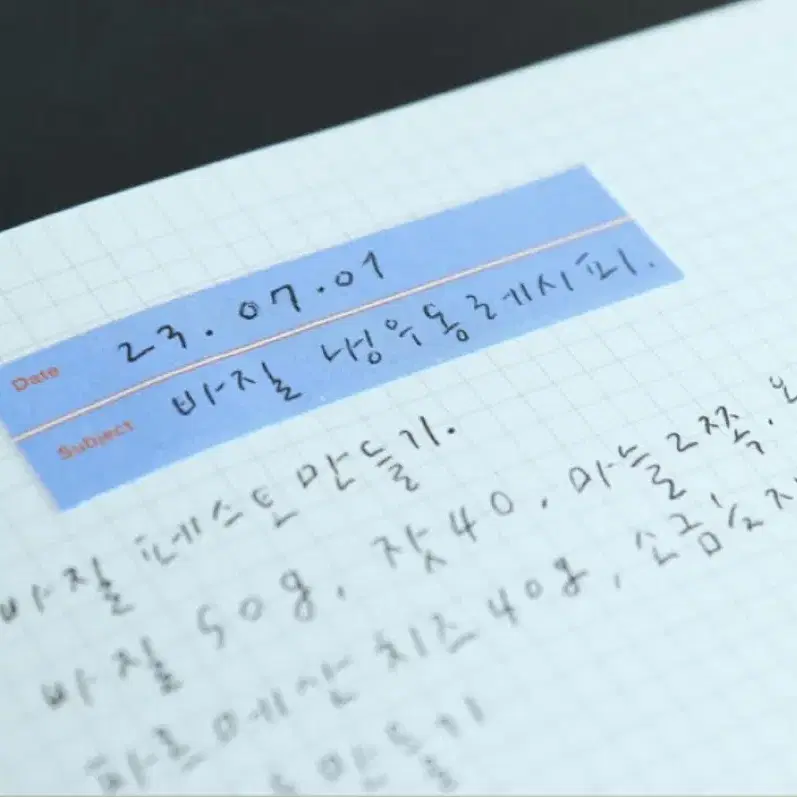 Date 23.07.01
Subject 바질 냉우동 레시피.
바질 페스토 만들기.
바질 50g, 잣 40, 마늘 2쪽.
파르메산 치즈 40g, 소금
만들기